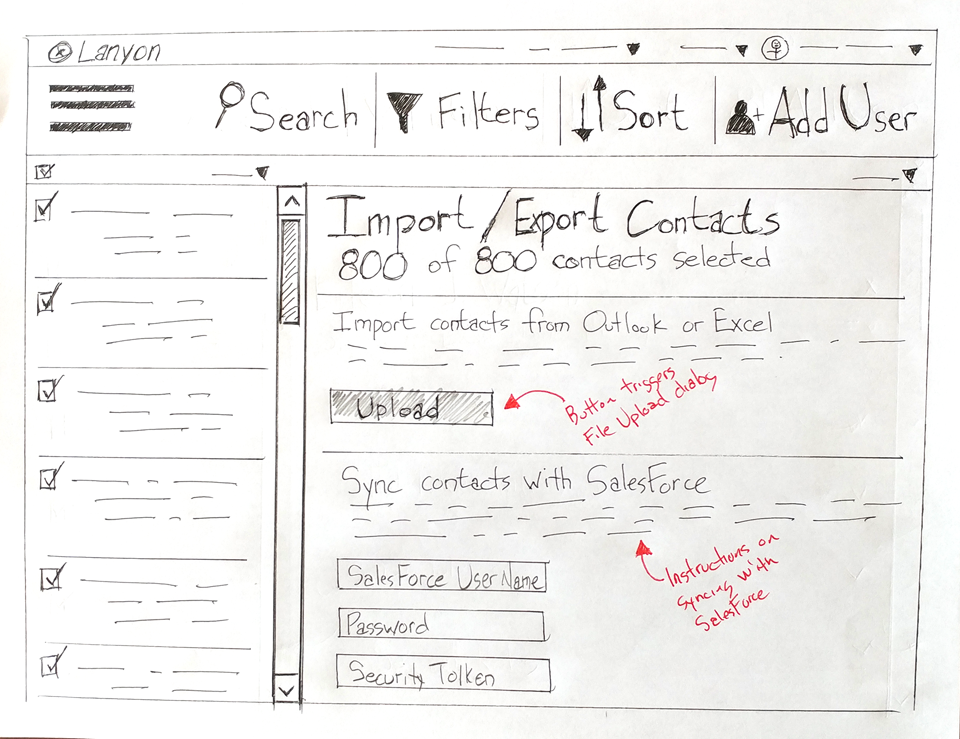 Lanyon
Search
Filters
Sort
Add User
Import/Export Contacts
800 of 800 contacts selected
Import contacts from Outlook or Excel
Upload
Button triggers
File Upload dialog
Sync contacts with SalesForce
Instructions on
syncing with
SalesForce
SalesForce UserName
Password
Security Tolken